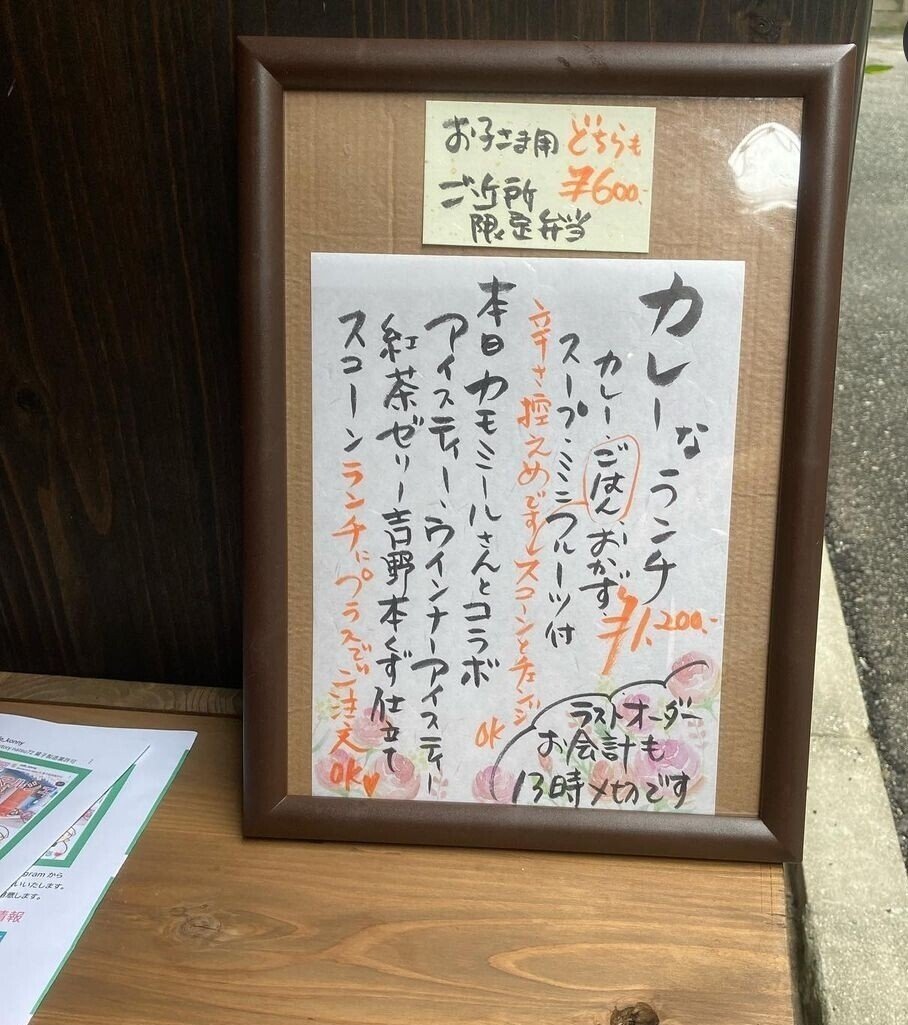 お子さま用 どちらも
ご近所 ¥600.-
限定弁当
カレーなランチ
¥1,200.-
カレー、ごはん、おかず、
スープ・ミニフルーツ付
辛さ控えめです スコーンとチェンジ
OK
本日カモミールさんとコラボ
アイスティー、ウインナーアイスティー
紅茶ゼリー吉野本くず仕立て
スコーン ランチにプラスでご注文
OK♥
ラストオーダー
お会計も
13時〆切です
gram から
いいたします。
情報